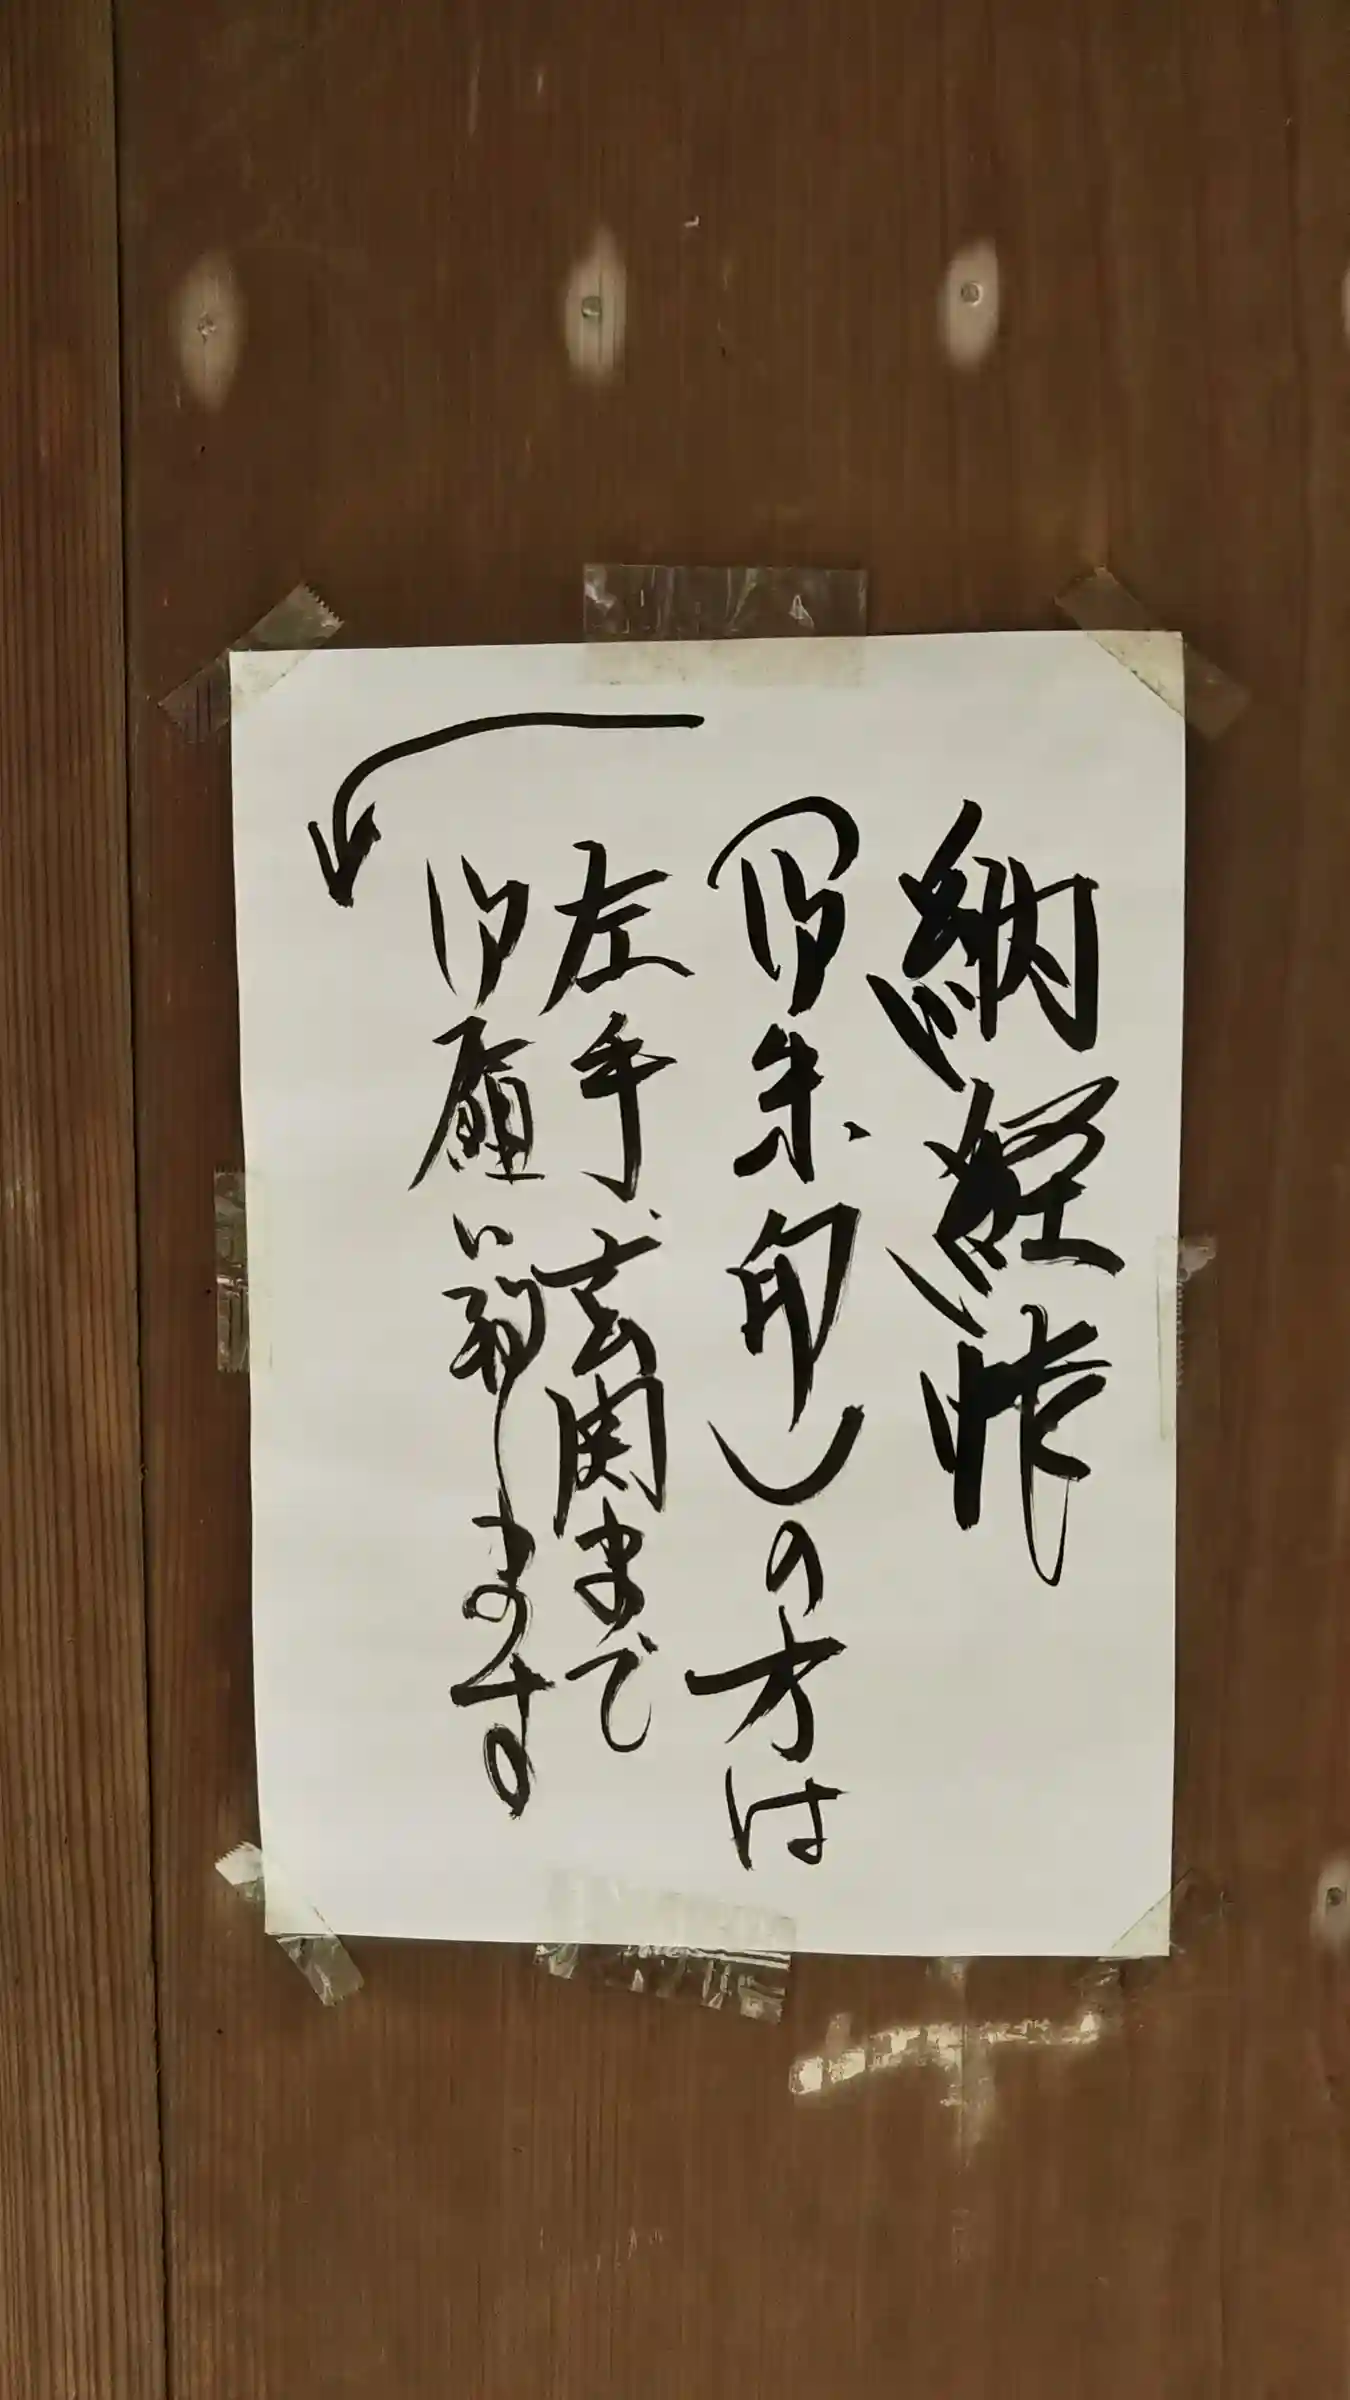 納経帖
(御朱印)の方は
左手、玄関まで
御願い致します